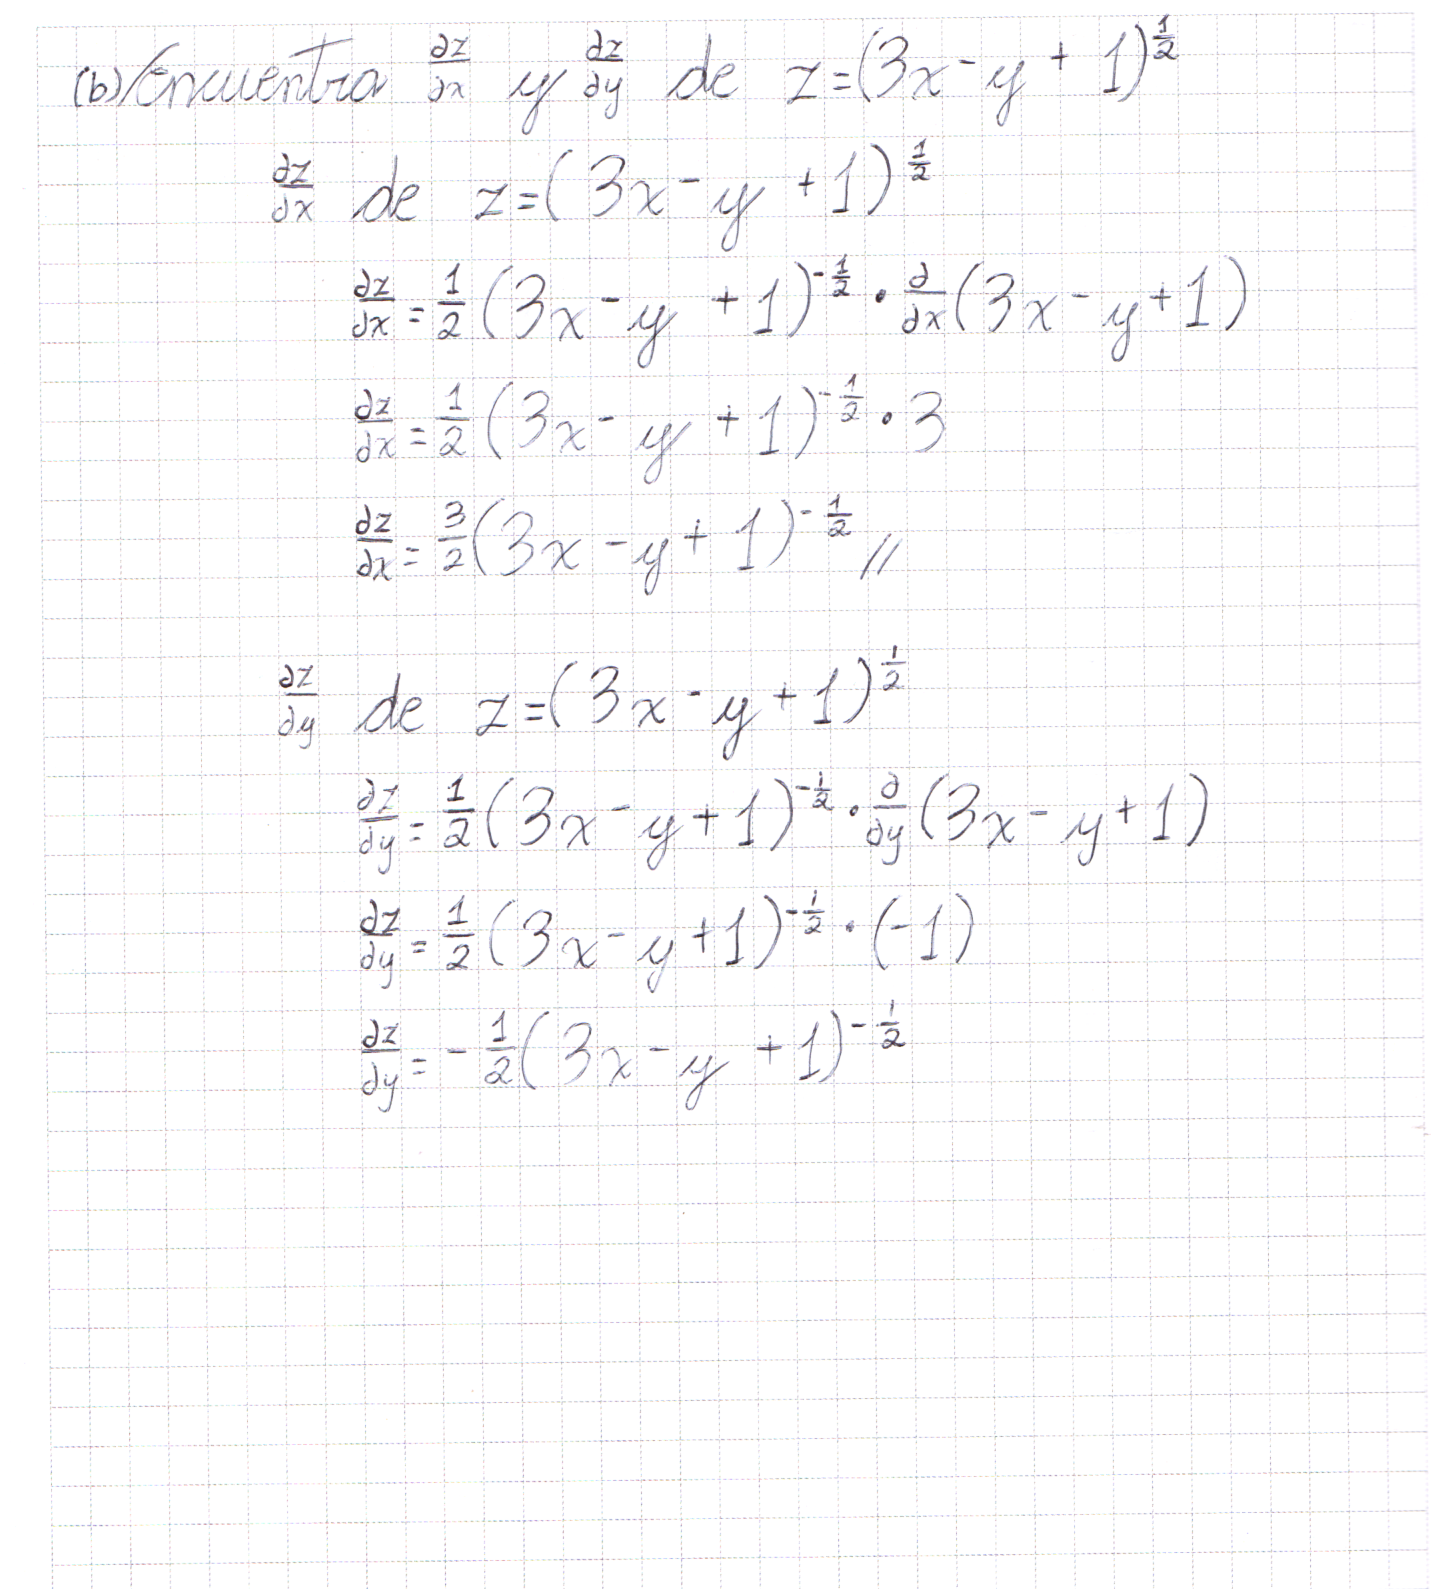 (b) Encuentra ∂z/∂x y ∂z/∂y de z=(3x-y+1)^(1/2)
∂z/∂x de z=(3x-y+1)^(1/2)
∂z/∂x = 1/2 (3x-y+1)^(-1/2) • ∂/∂x (3x-y+1)
∂z/∂x = 1/2 (3x-y+1)^(-1/2) • 3
∂z/∂x = 3/2 (3x-y+1)^(-1/2) //
∂z/∂y de z=(3x-y+1)^(1/2)
∂z/∂y = 1/2 (3x-y+1)^(-1/2) • ∂/∂y (3x-y+1)
∂z/∂y = 1/2 (3x-y+1)^(-1/2) • (-1)
∂z/∂y = -1/2 (3x-y+1)^(-1/2)